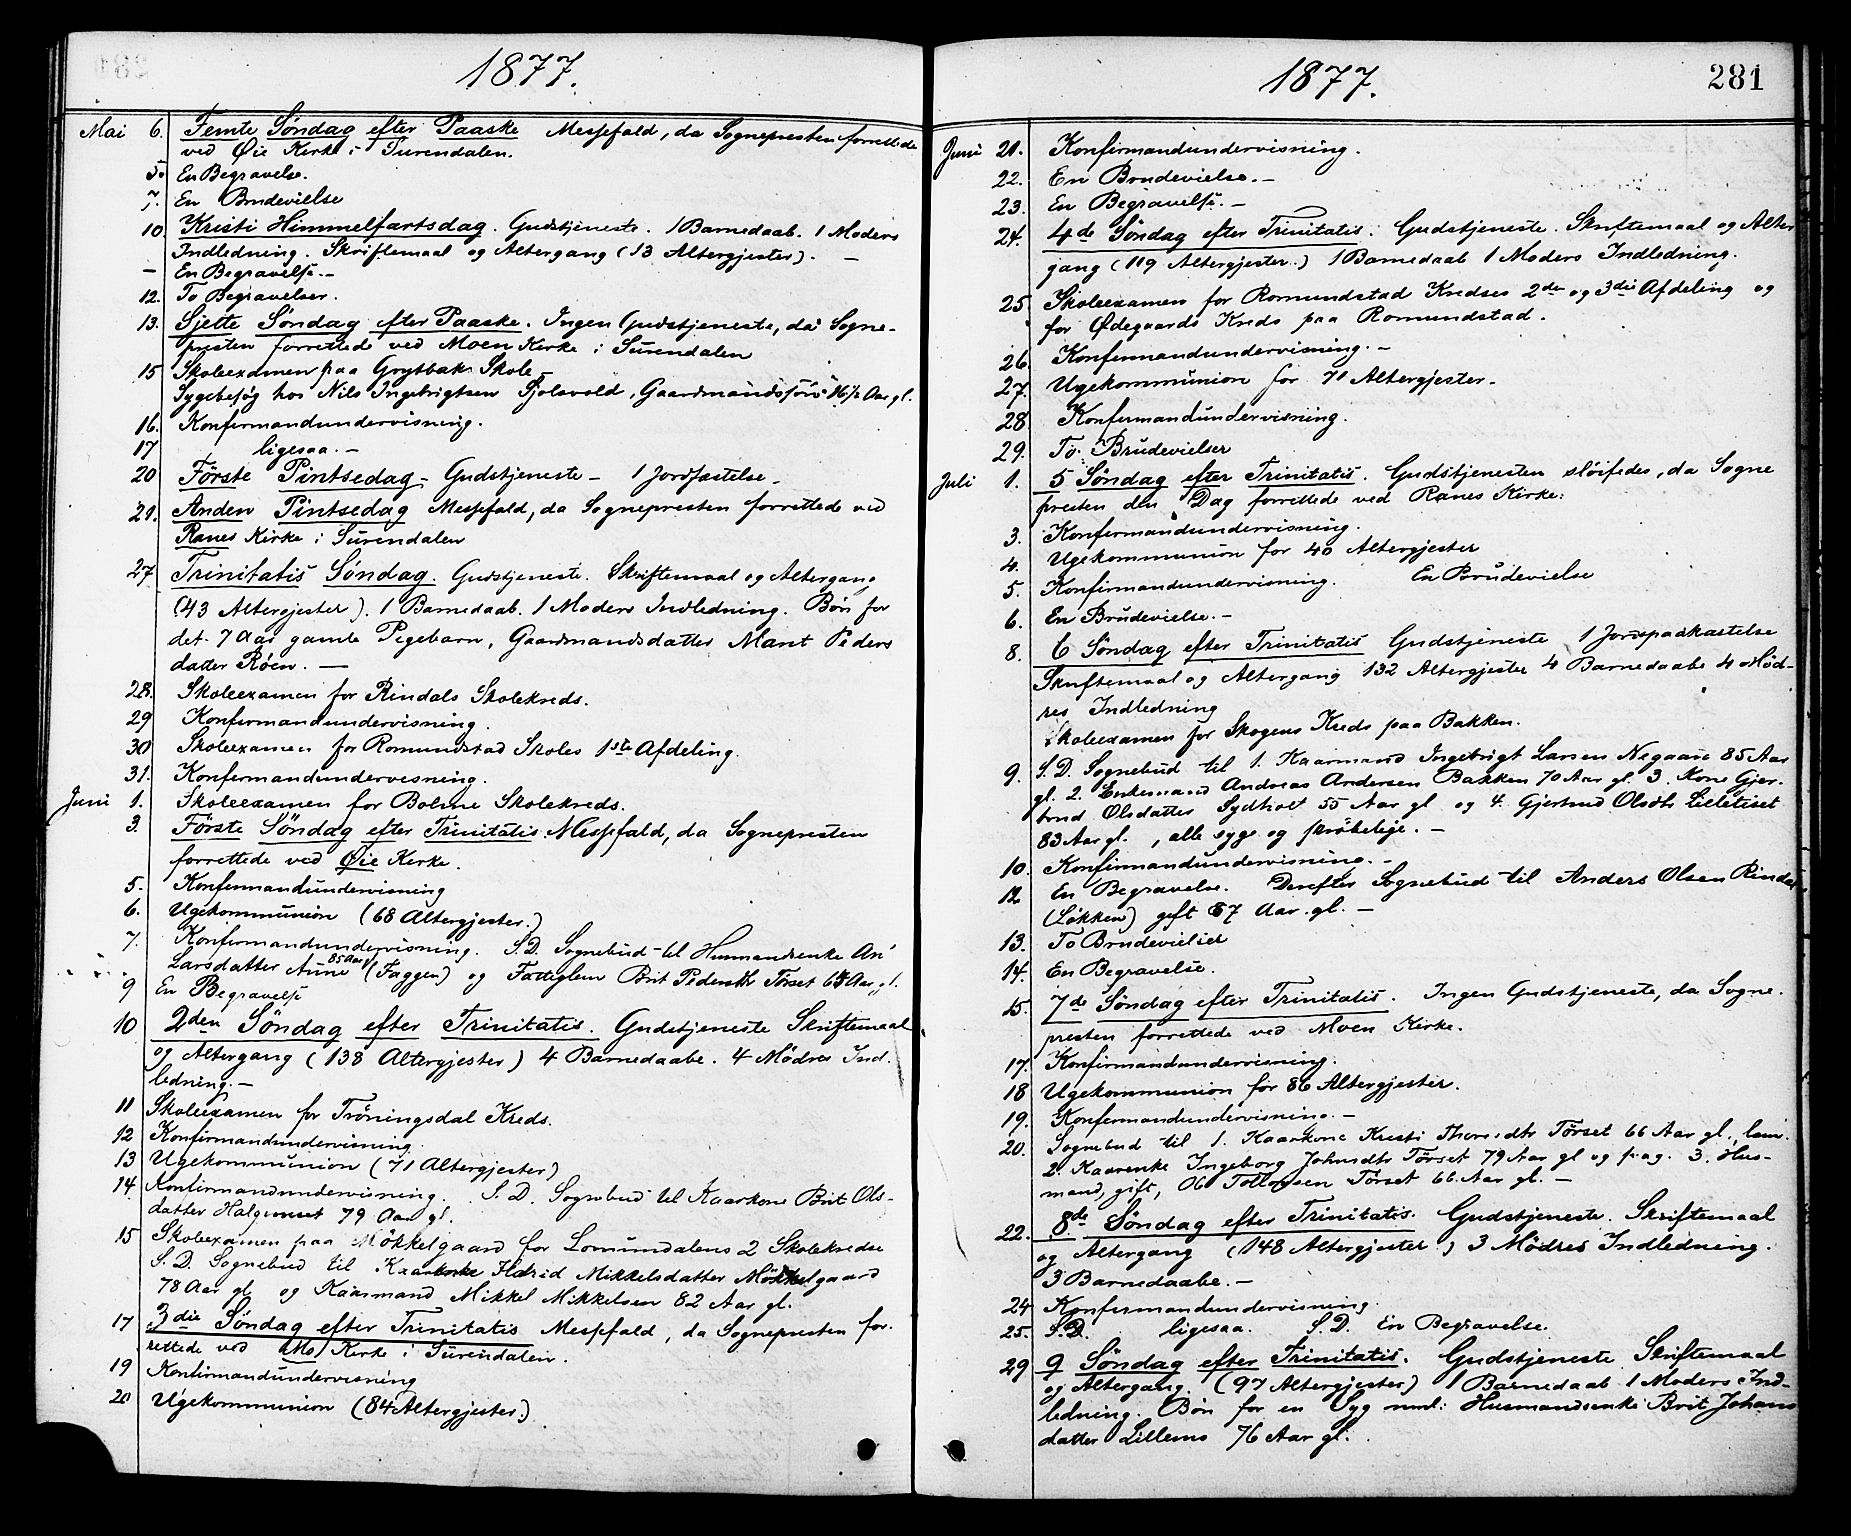 1877.
Mai 6. Femte Søndag efter Paaske Messefald, da Sognepresten forrettede
ved Øie Kirke i Surendalen.
5. En Begravelse.
7. En Brudevielse
10. Kristi Himmelfartsdag. Gudstjeneste. 1 Barnedaab. 1 Moders
Indledning. Skriftemaal og Altergang (13 Altergjester). —
— En Begravelse. —
12. To Begravelser.
13. Sjette Søndag efter Paaske. Ingen Gudstjeneste, da Sogne-
presten forrettede ved Moen Kirke i Surendalen
15 Skoleexamen paa Grytbak Skole —
Sygebesøg hos Nils Ingebrigtsen Gaardmandssøn 16½ Aar gl.
16. Konfirmandundervisning.
17 ligesaa. —
20 Første Pintsedag — Gudstjeneste — 1 Jordfæstelse —
21. Anden Pintsedag Messefald, da Sognepresten forrettede ved
Ranes Kirke i Surendalen
27 Trinitatis Søndag. Gudstjeneste. Skriftemaal og Altergang
(43 Altergjester). 1 Barnedaab. 1 Moders Indledning. Bøn for
det 7 Aar gamle Pigebarn, Gaardmandsdatter Marit Peders
datter Røen. —
28. Skoleexamen for Rindals Skolekreds.
29 Konfirmandundervisning.
30 Skoleexamen for Romundstad Skoles 1ste Afdeling.
31. Konfirmandundervisning.
Juni 1. Skoleexamen for Bolme Skolekreds.
3. Første Søndag efter Trinitatis. Messefald, da Sognepresten
forrettede ved Øie Kirke.
5. Konfirmandundervisning
6. Ugekommunion (68 Altergjester.)
7. Konfirmandundervisning. S.D. Sognebud til Husmandsenke Ari
Larsdatter Aune 85 Aar gl (Faggen) og Fattiglem Brit Pedersdtr Tørset 68 Aar gl.
9 En Begravelse
10 2den Søndag efter Trinitatis. Gudstjeneste Skriftemaal
og Altergang (138 Altergjester) 4 Barnedaabe. 4 Mødres Ind-
ledning. —
11 Skoleexamen for Trøningsdal Kreds.
12 Konfirmandundervisning.
13 Ugekommunion (71 Altergjester)
14 Konfirmandundervisning. S.D. Sognebud til Kaarkone Brit Ols-
datter Halgunset 79 Aar gl.
15 Skoleexamen paa Møkkelgaard for Lomundalens 2 Skolekredse
S.D. Sognebud til Kaarenke Ildrid Mikkelsdatter Møkkelgaard
78 Aar gl og Kaarmand Mikkel Mikkelsen 82 Aar gl.
17 3die Søndag efter Trinitatis Messefald, da Sognepresten for-
rettede ved Mo Kirke i Surendalen.
19 Konfirmandundervisning
20 Ugekommunion (84 Altergjester.)
1877. 281
Juni 21. Konfirmandundervisning.
22. En Brudevielse. —
23. En Begravelse. —
24. 4de Søndag efter Trinitatis. Gudstjeneste. Skriftemaal og Alter
gang (119 Altergjester.) 1 Barnedaab 1 Moders Indledning.
25 Skoleexamen for Romundstad Kredses 2den og 3die Afdeling og
for Ødegaards Kreds paa Romundstad.
26 Konfirmandundervisning. —
27. Ugekommunion for 71 Altergjester —
28 Konfirmandundervisning.
29. To Brudevielser
Juli 1. 5 Søndag efter Trinitatis. Gudstjenesten sløifedes, da Sogne
presten den Dag forrettede ved Ranes Kirke.
3. Konfirmandundervisning.
4. Ugekommunion for 40 Altergjester
5. Konfirmandundervisning. En Brudevielse
6. En Brudevielse. —
8. 6 Søndag efter Trinitatis Gudstjeneste 1 Jordpaakastelse
Skriftemaal og Altergang 132 Altergjester 4 Barnedaabe 4 Mød-
res Indledning
Skoleexamen for Skogens Kreds paa Bakken.
9. S.D. Sognebud til 1. Kaarmand Ingebrigt Larsen Negaard 85 Aar
gl. 2. Enkemand Andreas Andersen Bakken 70 Aar gl. 3. Kone Gjer-
trud Olsdatter Sydholt 55 Aar gl og 4. Gjertrud Olsdtr Lilletiset
83 Aar gl., alle syge og skrøbelige. —
10. Konfirmandundervisning. —
12 En Begravelse. Derefter Sognebud til Anders Olsen Rindal
(Løkken) gift 87 Aar gl. —
13. To Brudevielser
14. En Begravelse.
15. 7de Søndag efter Trinitatis. Ingen Gudstjeneste, da Sogne-
presten forrettede ved Moen Kirke.
17. Konfirmandundervisning.
18 Ugekommunion for 86 Altergjester.
19. Konfirmandundervisning. —
20. Sognebud til 1. Kaarkone Kristi Tørset 66 Aar gl., lam.
2. Kaarenke Ingeborg Johnsdtr Tørset 79 Aar gl og 3. Hus-
mand, gift, Tørset 66 Aar gl. —
22. 8de Søndag efter Trinitatis. Gudstjeneste. Skriftemaal
og Altergang (148 Altergjester) 3 Mødres Indledning.
3 Barnedaabe. —
24 Konfirmandundervisning.
25. S.D. ligesaa. S.D. En Begravelse.
29 9 Søndag efter Trinitatis. Gudstjeneste Skriftemaal
og Altergang. (97 Altergjester) 1 Barnedaab 1 Moders Ind-
ledning. Bøn for en Syg nml: Husmandsenke Brit Johans
datter Lillemo 76 Aar gl.